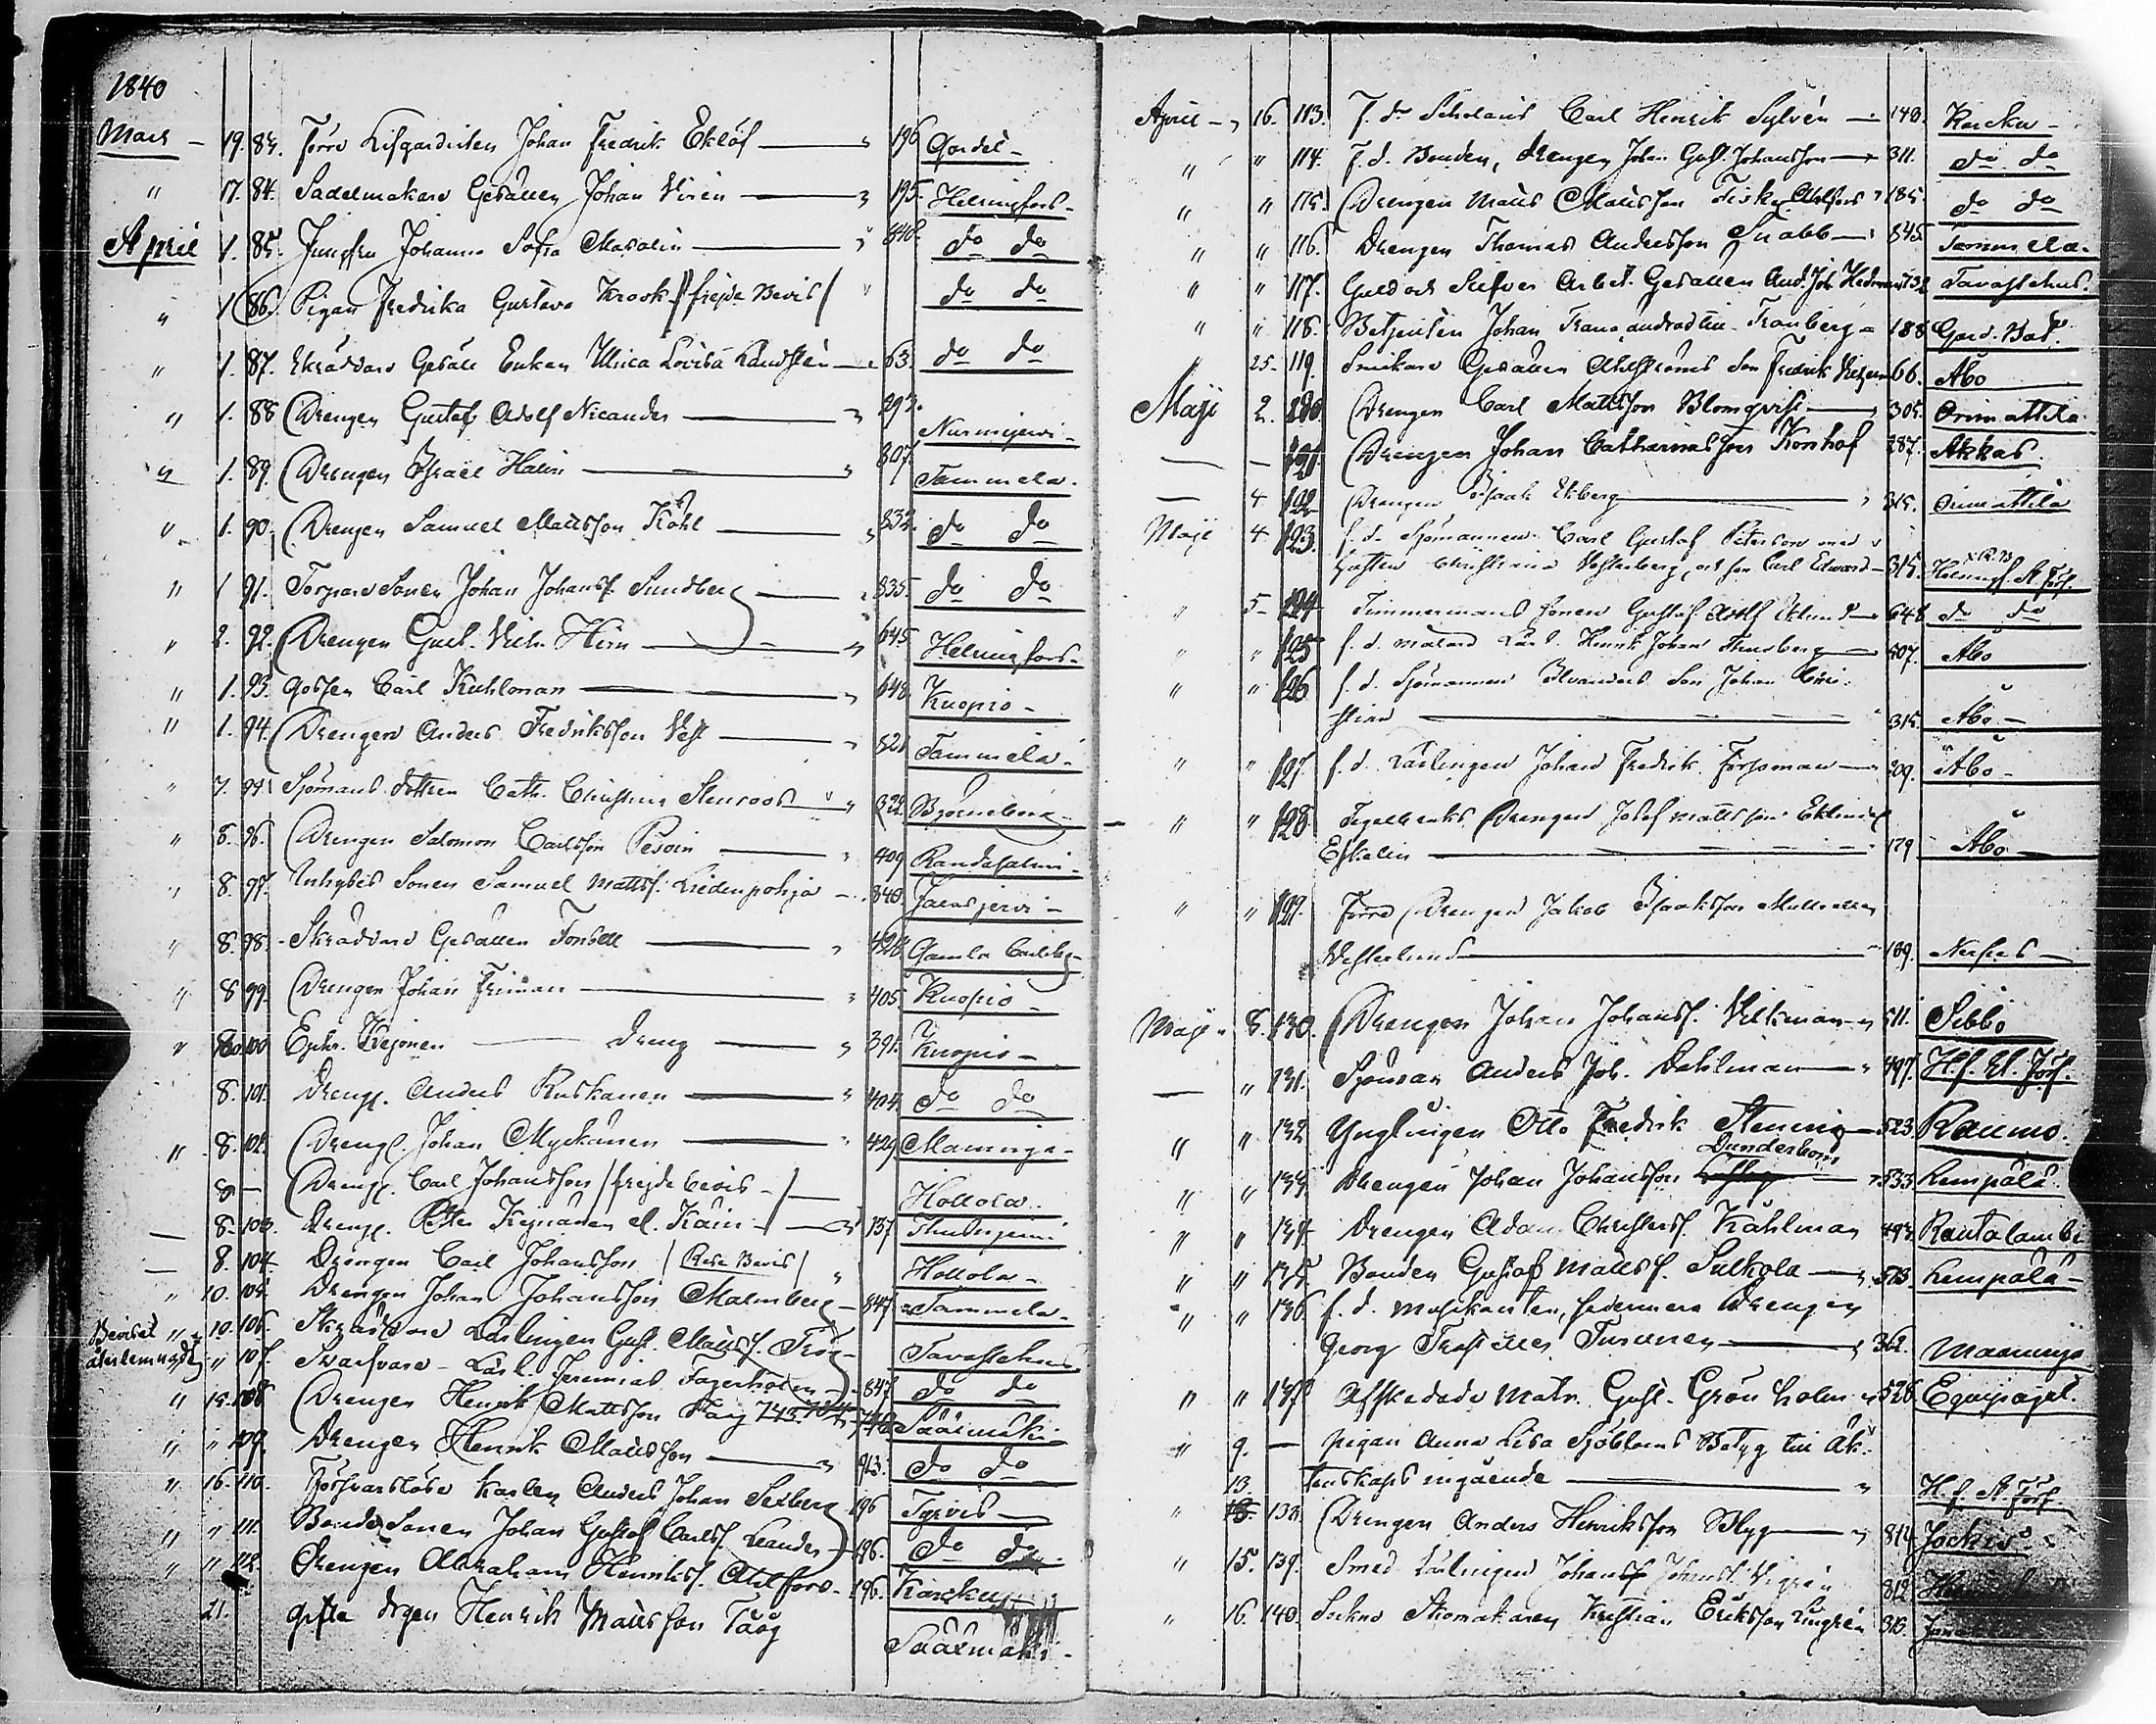 1840
Mars - 19. 83. Förre Lifgardisten Johan Fredrik Eklöf — " 196 Gardet -
" 17. 84. Sadelmakare Gesällen Johan Virén — " 195. Helsingfors -
April 1. 85. Jungfru Johanna Sofia Masalin — " 840. do do
" 1 86. Pigan Fredrika Gustava Krook / frejde Bevis / " do do
" 1. 87. Skräddare Gesäll Enkan Ulrica Lovisa Landstén — " 63. do do
" 1. 88 Drengen Gustaf Adolf Nicander — " 293. Nurmijervi -
" 1. 89. Drengen Israel Halin — " 807 Tammela -
" 1. 90. Drengen Samuel Mattsson Kohl — " 832. do do
" 1 91. Torpare Sonen Johan Johanss. Sundberg — " 835 do do
" 2. 92. Drengen Gust. Vilh. Hirn — " 645 Helsingfors -
" 1. 93. Gossen Carl Kuhlman — " 648 Kuopio -
" 1. 94. Drengen Anders Fredriksson Vest — " 821 Tammela -
" 7. 95. Sjömans dottren Cath. Christina Stenroos — " 322. Björneborg
" 8. 96. Drengen Salomon Carlsson Pesoin — " 409 Randasalmi -
" 8. 97. Inhyses Sonen Samuel Mattss. Liedenpohja — " 840. Jalasjervi -
" 8. 98. Skräddare Gesällen Forsell — " 426 Gamla Carleby -
" 8 99. Drengen Johan Friman — " 405 Kuopio -
" 8 100 Ephr. Keijonen — Dreng — " 391. Kuopio -
8. 101. Drenge. Anders Ruskanen — " 404. do do
" 8. 102. Dreng. Johan Myckänen — " 429 Maninga -
8 — Dreng. Carl Johansson / frejde bevis - / Hollola -
— 8. 103. Dreng. Petter Keinänen el. Kain - " 137
— 8. 104 Drengen Carl Johansson / Rese Bevis / " Hollola -
" 10. 105. Drengen Johan Johansson Malmberg - 847 Tammela -
Beviset " 10. 106. Skräddare Lärlingen Gust. Mattss. Tavastehus
återlemnadt " 107. Svarfvare - Lärl. Jeremias Fagerholm - 847 do do
" 15. 108 Drengen Henrik Mattsson Saaremäki
" " 109. Drengen Henrik Mattsson — " 913. do do
" 16. 110. Försvarslöse Karlen Anders Johan Sexberg 196 Tyrvis -
" " 111. Bonde Sonen Johan Gustaf Carlss. Leander - 196. do do
" " 112. Drengen Abraham Henrikss. Ahlfors - 196. Karcku
21. Gifte drgen Henrik Mattsson Taög Sääxmäki -
April - " 16. 113. F. d. Scholaris Carl Henrik Sylvén — 140. Karcku -
" " 114. F. d. Bonden, drengen Johan Gust. Johansson — 311. do do
" " 115. Drengen Matts Mattsson Ahlfors " 185. do do
" " 116. Drengen Thomas Andersson Snabb — " 845. Tammela -
" " 117. Guld och Silfver Arbet. Gesällen And. Joh. Hedman 732 Tavastehus.
" " 118. Betjenten Johan Tranberg - 188 Gard. Bat.
" 25 - 119. Snickare Gesällen Ahlströms Son Fredrik 66. Åbo
Maji 2. 120. Drengen Carl Mattsson Blomqvist — " 305. Orimattila
— — 121. Drengen Johan Catharinasson Konhof 287. Akkas
— 4 122 Drengen Isaak Ekberg — " 315. Orimattila
Maji 4 123. f. d. Sjömannen Carl Gustaf Peterson med
hustru Christina Vesterberg, och son Carl Edvard - 315. Helsingf. St. Förs.
" 5 - 124 Timmermans Sonen Gustaf Adolf Eklund — 648 do do
" " 125 f. d. målare Lärl. Henrik Johan Thunberg — 507. Åbo
" " 126 f. d. Sjömannen Ilvanders Son Johan Chri-
stian — " 315. Åbo -
" " 127. f. d. Lärlingen Johan Fredrik Forsman — 209. Åbo -
" " 128 Tegelbruks Drengen Josef Mattsson Eklund
Eskelin — 179 Åbo -
" " 129. Förre Drengen Jakob Isaksson
Vesterlund — 189. Nerpes -
Maji " 8. 130. Drengen Johan Johanss. Vilkman — 511. Sibbo
— " 131. Sjöman Anders Joh. Dahlman — " 497. H.f. St. Förs.
" " 132 Ynglingen Otto Fredrik Stening — 523 Raumo.
Dunderbom
" " 133. Drengen Johan Johansson " 533 Lempälä
" " 134. Drengen Adam Christerss. Kählman 493. Rautalambi
" " 135. Bonden Gustaf Mattss. Sulkola — " 513. Lempälä -
" " 136. f. d. Musikanten, sedermera Drengen
Georg Turunen — " 362. Maaninga
" " 137 Afskedade Matr. Gust. Grönholm " 526. Equipaget.
" 9. — pigan Anna Lisa Sjöbloms Betyg till Äk-
13. tenskaps ingående — " H.f. St. Förs
" 138 Drengen Anders Henriksson Blyg — " 814 Jockis
" 15. 139. Smed Lärlingen Johan Johanss. Vigrén 812
" 16. 140. Sockne Skomakaren Kristian Eriksson Ljungrén 315.